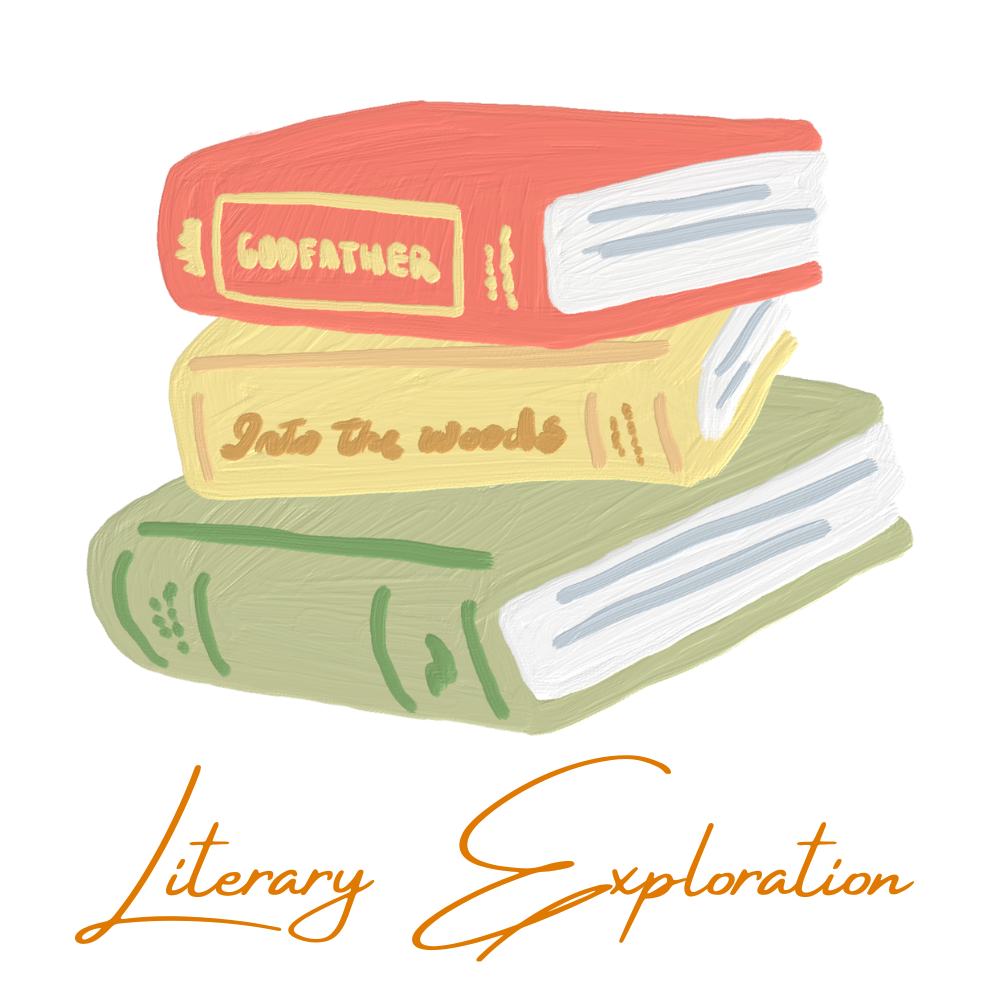 GODFATHER
Into The woods
Literary Exploration